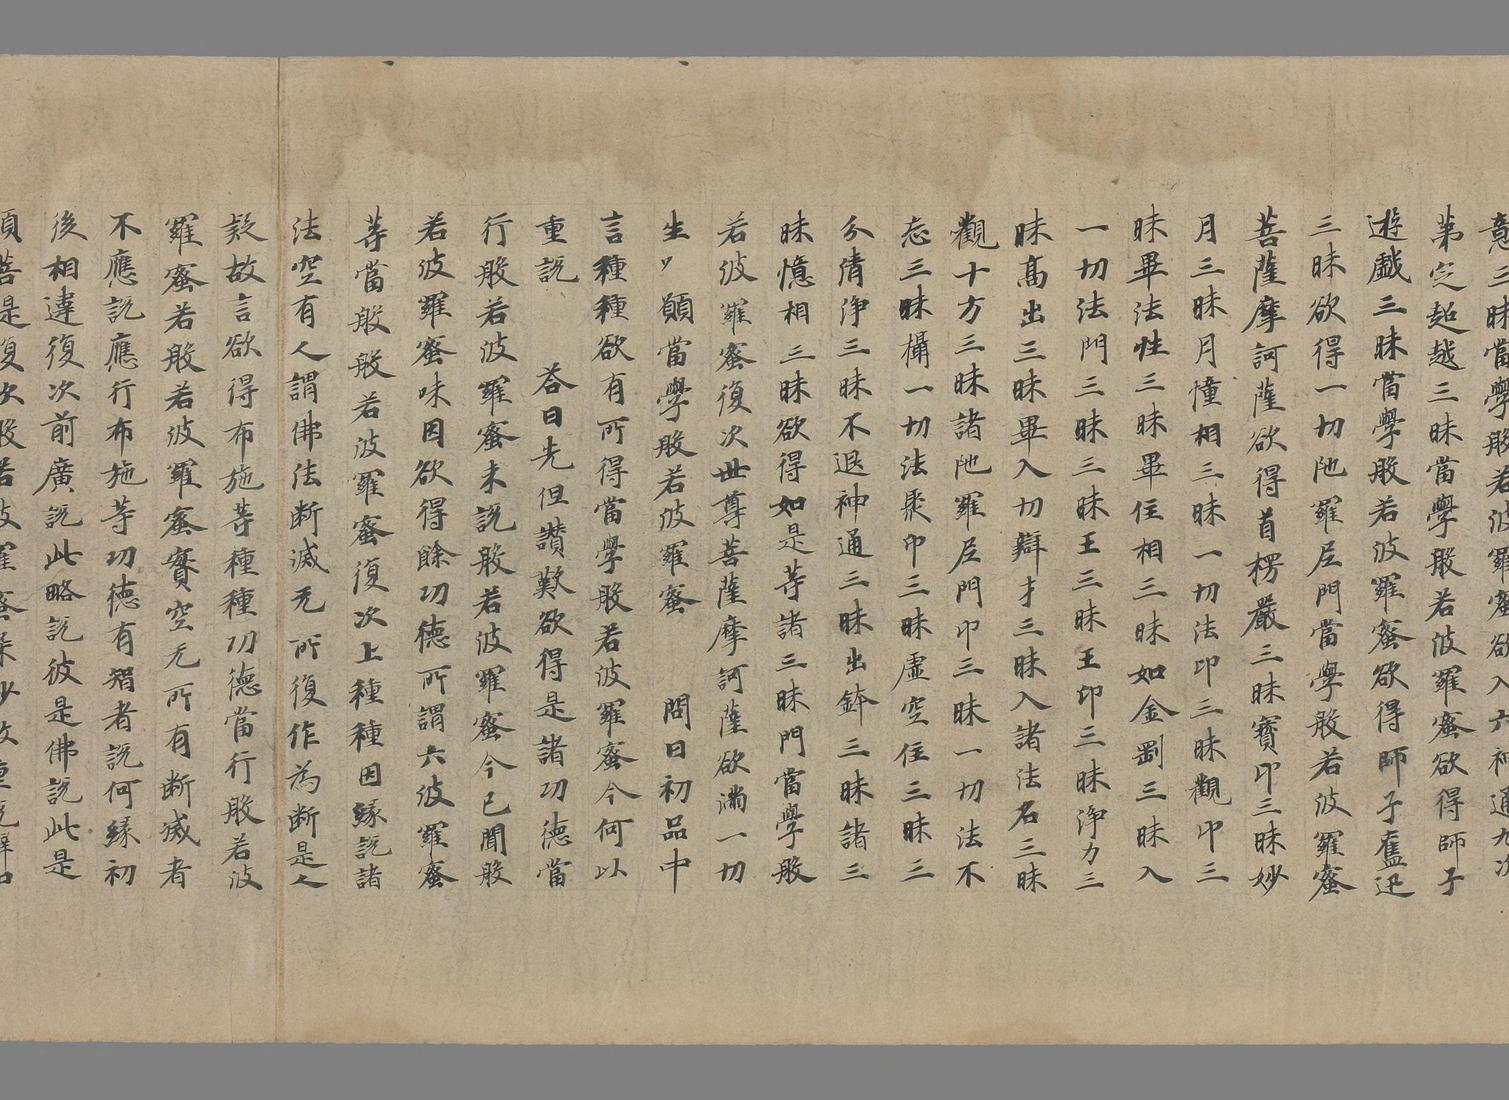 意三昧當學般若波羅蜜欲入六神通九次
第定超越三昧當學般若波羅蜜欲得師子
遊戲三昧當學般若波羅蜜欲得師子奮迅
三昧欲得一切陁羅尼門當學般若波羅蜜
菩薩摩訶薩欲得首楞嚴三昧寶印三昧妙
月三昧月憧相三昧一切法印三昧觀印三
昧畢法性三昧畢住相三昧如金剛三昧入
一切法門三昧三昧王三昧王印三昧淨力三
昧髙出三昧畢入切辯才三昧入諸法名三昧
觀十方三昧諸陁羅尼門印三昧一切法不
忘三昧攝一切法聚印三昧虛空住三昧三
分清淨三昧不退神通三昧出鉢三昧諸三
昧憶相三昧欲得如是等諸三昧門當學般
若波羅蜜復次世尊菩薩摩訶薩欲滿一切
生〃願當學般若波羅蜜 問曰初品中
言種種欲有所得當學般若波羅蜜今何以
重說 荅曰先但讚歎欲得是諸功德當
行般若波羅蜜未說般若波羅蜜今已聞般
若波羅蜜味因欲得餘功德所謂六波羅蜜
等當般般若波羅蜜復次上種種因緣說諸
法空有人謂佛法断滅无所復作為断是人
疑故言欲得布施等種種功德當行般若波
羅蜜若般若波羅蜜實空无所有断滅者
不應說應行布施等功德有智者說何緣初
後相違復次前廣說此略說彼是佛說此是
須菩是復次般若波羅蜜深妙故重說譬如